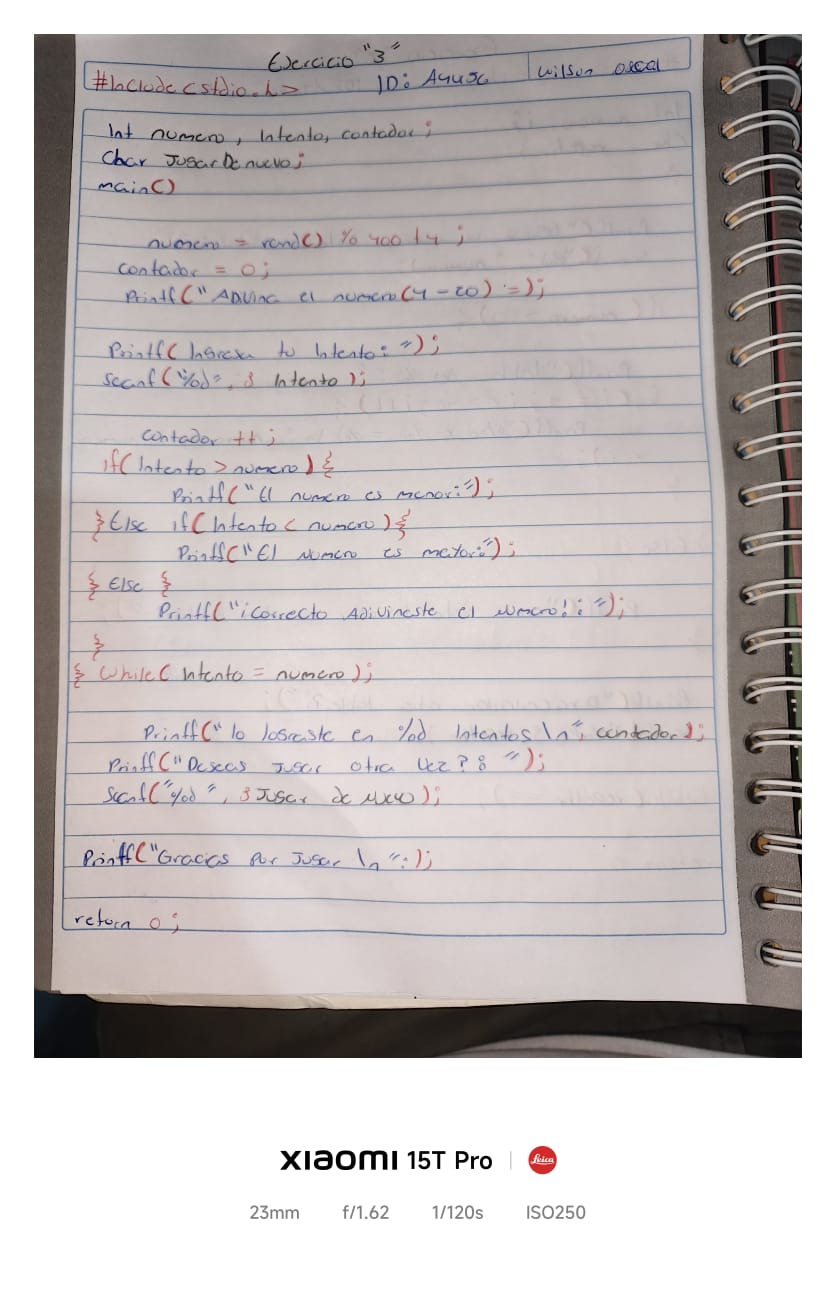 Ejercicio "3"
#Include <stdio.h>
ID: A4456 Wilson
Int numero, Intento, contador;
Char JugarDenuevo;
main()
numero = rand() % 400 + 4 ;
contador = 0;
Printf(" ADVina el numero(4-20) :=);
Printf( Ingresa tu Intento: ");
Scanf("%d", & Intento );
contador ++ ;
if( Intento > numero ) {
Printf("El numero es menor:");
} Else if( Intento < numero ) {
Printf("El Numero es mayor:");
} Else {
Printf("¡Correcto Adivinaste el numero!: ");
}
} While( Intento = numero );
Printf(" lo lograste en %d Intentos \n", contador );
Printf("Deseas Jugar otra Vez?: ");
Scanf("%d", & Jugar de Nuevo );
Printf("Gracias Por Jugar \n":);
return 0;
XIAOMI 15T Pro | Leica
23mm f/1.62 1/120s ISO250